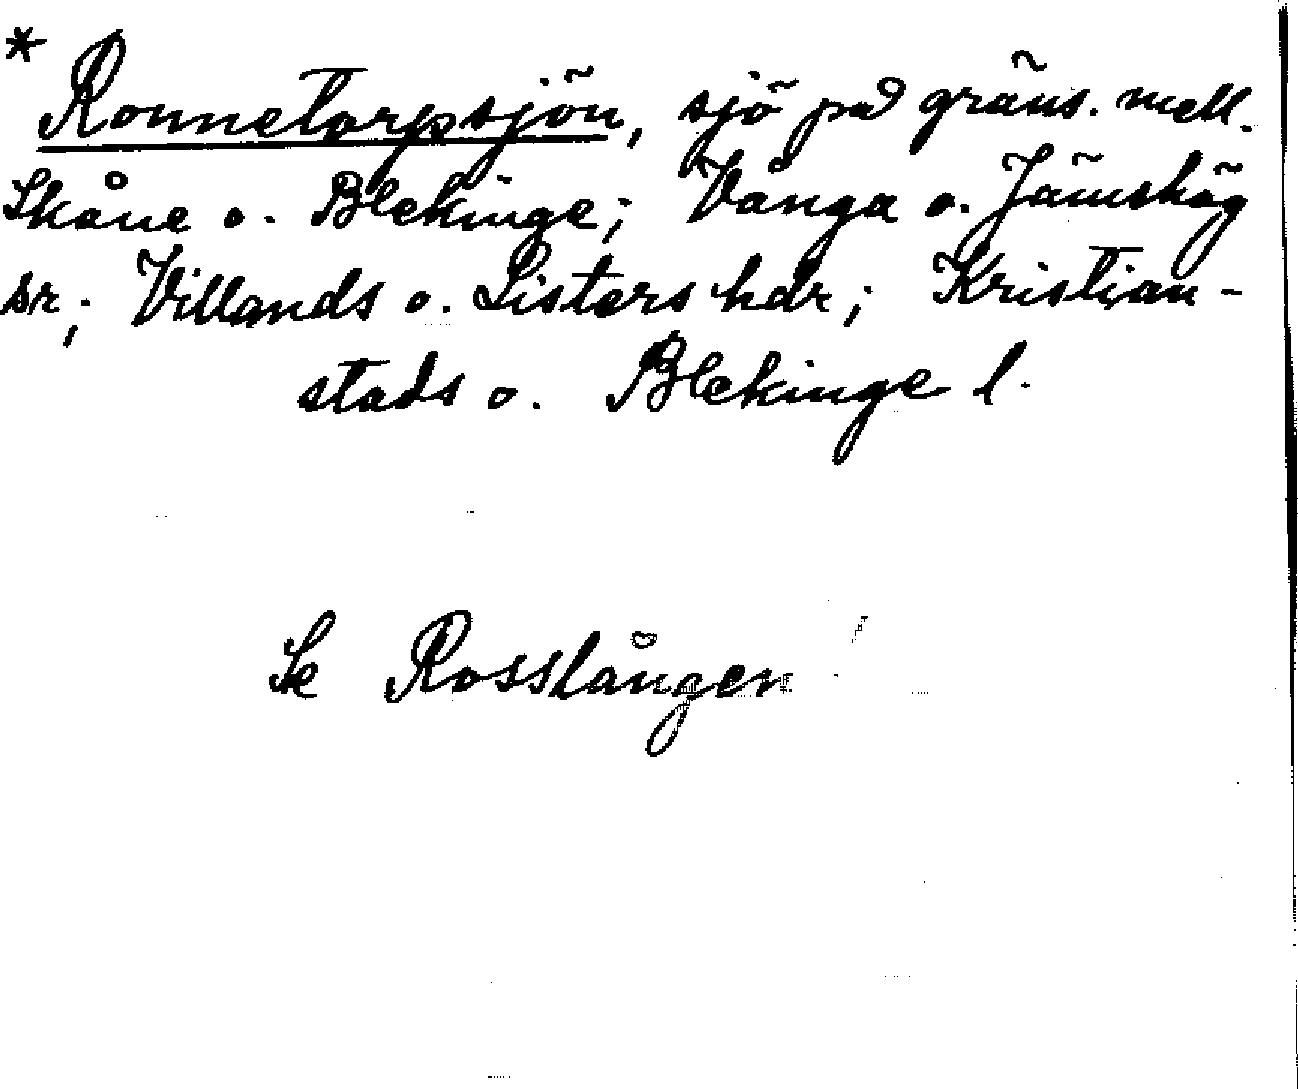 * Ronnetorpsjön, sjö på gräns. mell.
Skåne o. Blekinge; Vånga o. Jämshög
sr; Villands o. Listers hdr; Kristian-
stads o. Blekinge l.
Se Rosslången